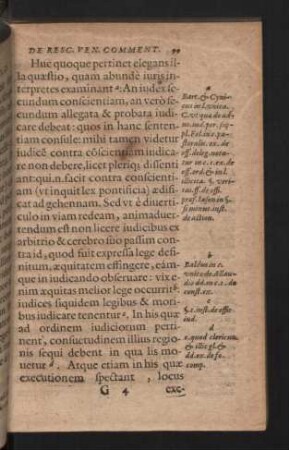 DE RESC. VEN. COMMENT.
Huc quoque pertinet elegans il-
la quæstio, quam abundè iuris in-
terpretes examinant a: An iudex se-
cundum conscientiam, an verò se-
cundum allegata & probata iudi-
care debeat: quos in hanc senten-
tiam consule: mihi tamen videtur
iudicē contra cōscientiam iudica-
re non debere, licet pleriqꝫ dissenti
ant: qui.n. facit contra conscienti-
am (vt inquit lex pontificia) ædifi-
cat ad gehennam. Sed vt è diuerti-
culo in viam redeam, animaduer-
tendum est non licere iudicibus ex
arbitrio & cerebro suo passim con-
tra id, quod fuit expressa lege defi-
nitum, æquitatem effingere; eám-
que in iudicando obseruare: vix e-
nim æquitas melior lege occurrit b:
iudices siquidem legibus & mori-
bus iudicare tenentur c. In his quæ
ad ordinem iudiciorum perti-
nent, consuetudinem illius regio-
nis sequi debent in qua lis mo-
uetur d. Atque etiam in his quæ
executionem spectant, locus
G 4 exe-
a
Bart. & Cyni-
us in l.
b
Baldus in c.
const. ex.
c
§. 1. inst. de offic.
iud.
d
c. quod clericis
& illic gl. &
dd. ex. de fo.
comp.